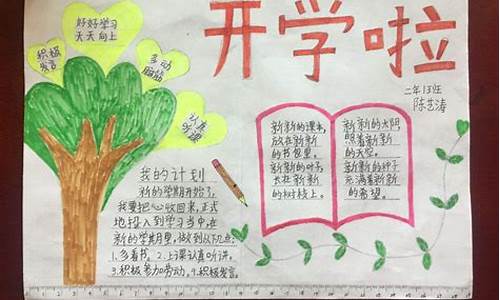 开学啦
二年13班
陈艺涛
好好学习
天天向上
积极
发言
多动
脑筋
认真
听课
我的计划
新的学期开始了,
我要把心收回来,正式
地投入到学习当中,在
新的学期里,做到以下几点:
1.多看书。2.上课认真听讲。
3.积极参加劳动。4.积极发言。
新新的课本,
放在新新
的书包里。
新新的叶子,
长在新新
的树枝上。
新新的太阳
照着新新
的天空。
新新的种子
充满着新新
的希望。